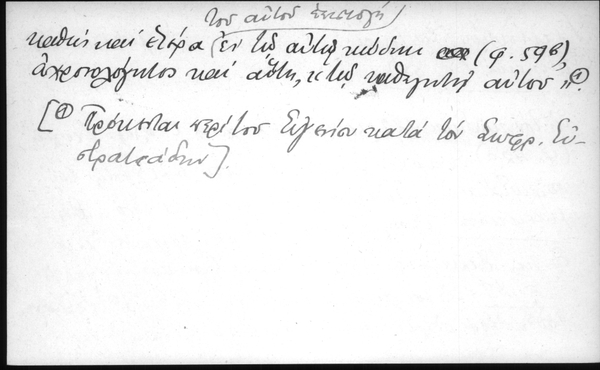 τοῦ αὐτοῦ ἐπιστολὴ
καθὼς καὶ ἑτέρα (ἐν τῷ αὐτῷ κώδικι (φ. 59β),
ἀχρονολόγητος καὶ αὕτη, «τῷ καθηγητῇ αὐτοῦ»(1).
[(1) Πρόκειται περὶ τοῦ Εὐγενίου κατὰ τὸν Σωφρ. Εὐ-
στρατιάδην].